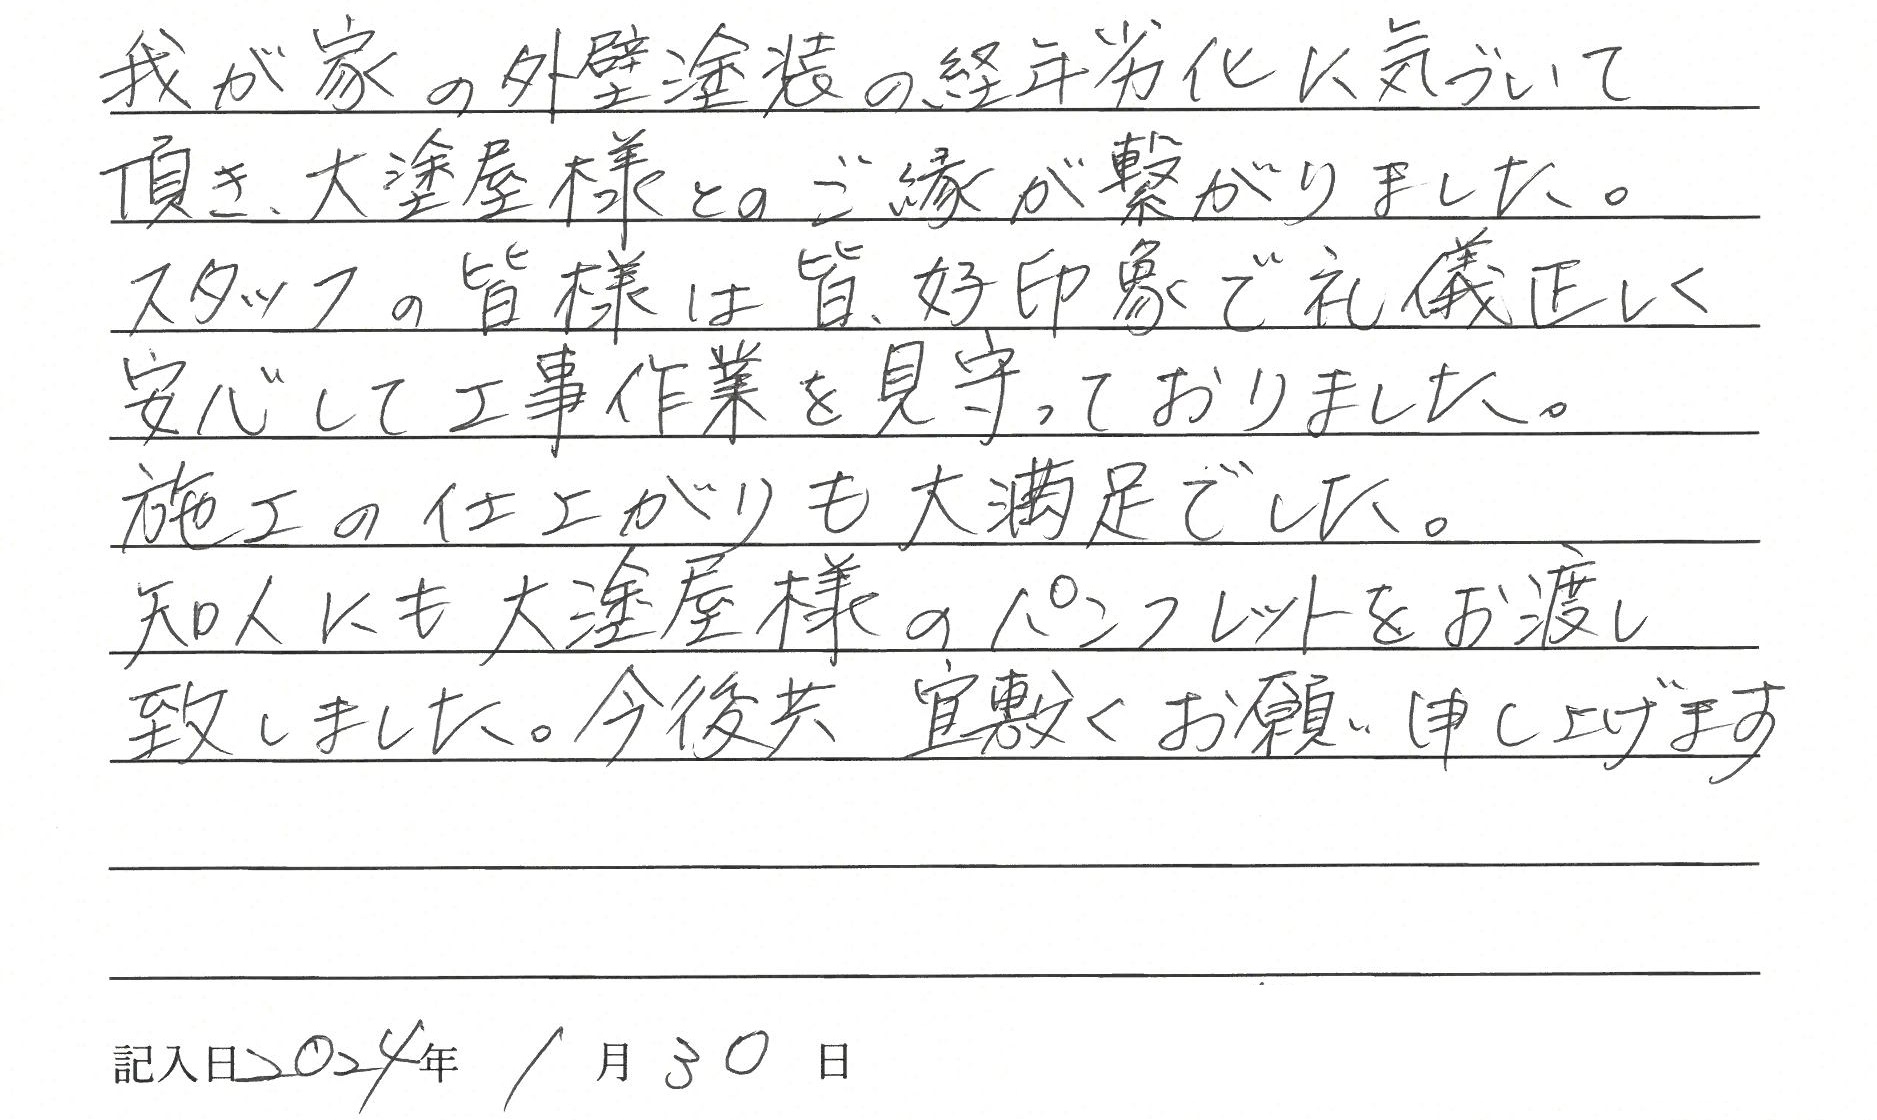 我が家の外壁塗装の経年劣化に気づいて
頂き、大塗屋様とのご縁が繋がりました。
スタッフの皆様は皆、好印象で礼儀正しく
安心して工事作業を見守っておりました。
施工の仕上がりも大満足でした。
知人にも大塗屋様のパンフレットをお渡し
致しました。今後共 宜敷くお願い申し上げます
記入日2024年 1月30日